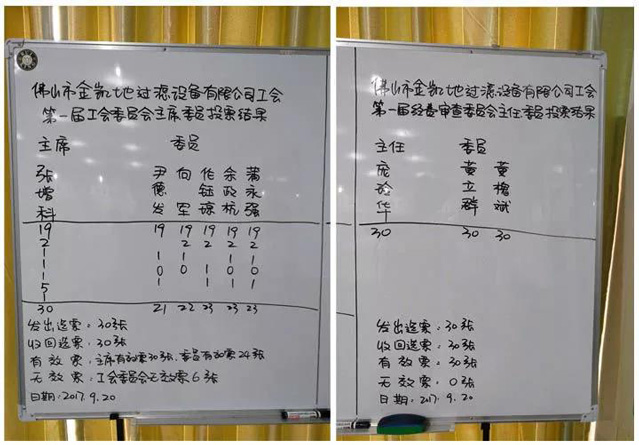 佛山市金凯地过滤设备有限公司工会
第一届工会委员会主席委员投票结果
主席 委员
张 尹 向 伍 余 蒲
增 德 钰 政 永
科 发 军 琼 杭 强
19 19 19 19 19 19
2 2 2 2 2
1 1 1 1 1
1 0 0 1 0 0
1 1 1 1 1
5
1
30 21 22 23 23 23
发出选票:30张
收回选票:30张
有效票:主席有效票30张、委员有效票24张
无效票:工会委员会无效票6张
日期:2017.9.20
佛山市金凯地过滤设备有限公司工会
第一届经费审查委员会主任委员投票结果
主任 委员
庞 黄 黄
玲 立 楷
华 群 斌
30 30 30
发出选票:30张
收回选票:30张
有效票:30张
无效票:0张
日期:2017.9.20